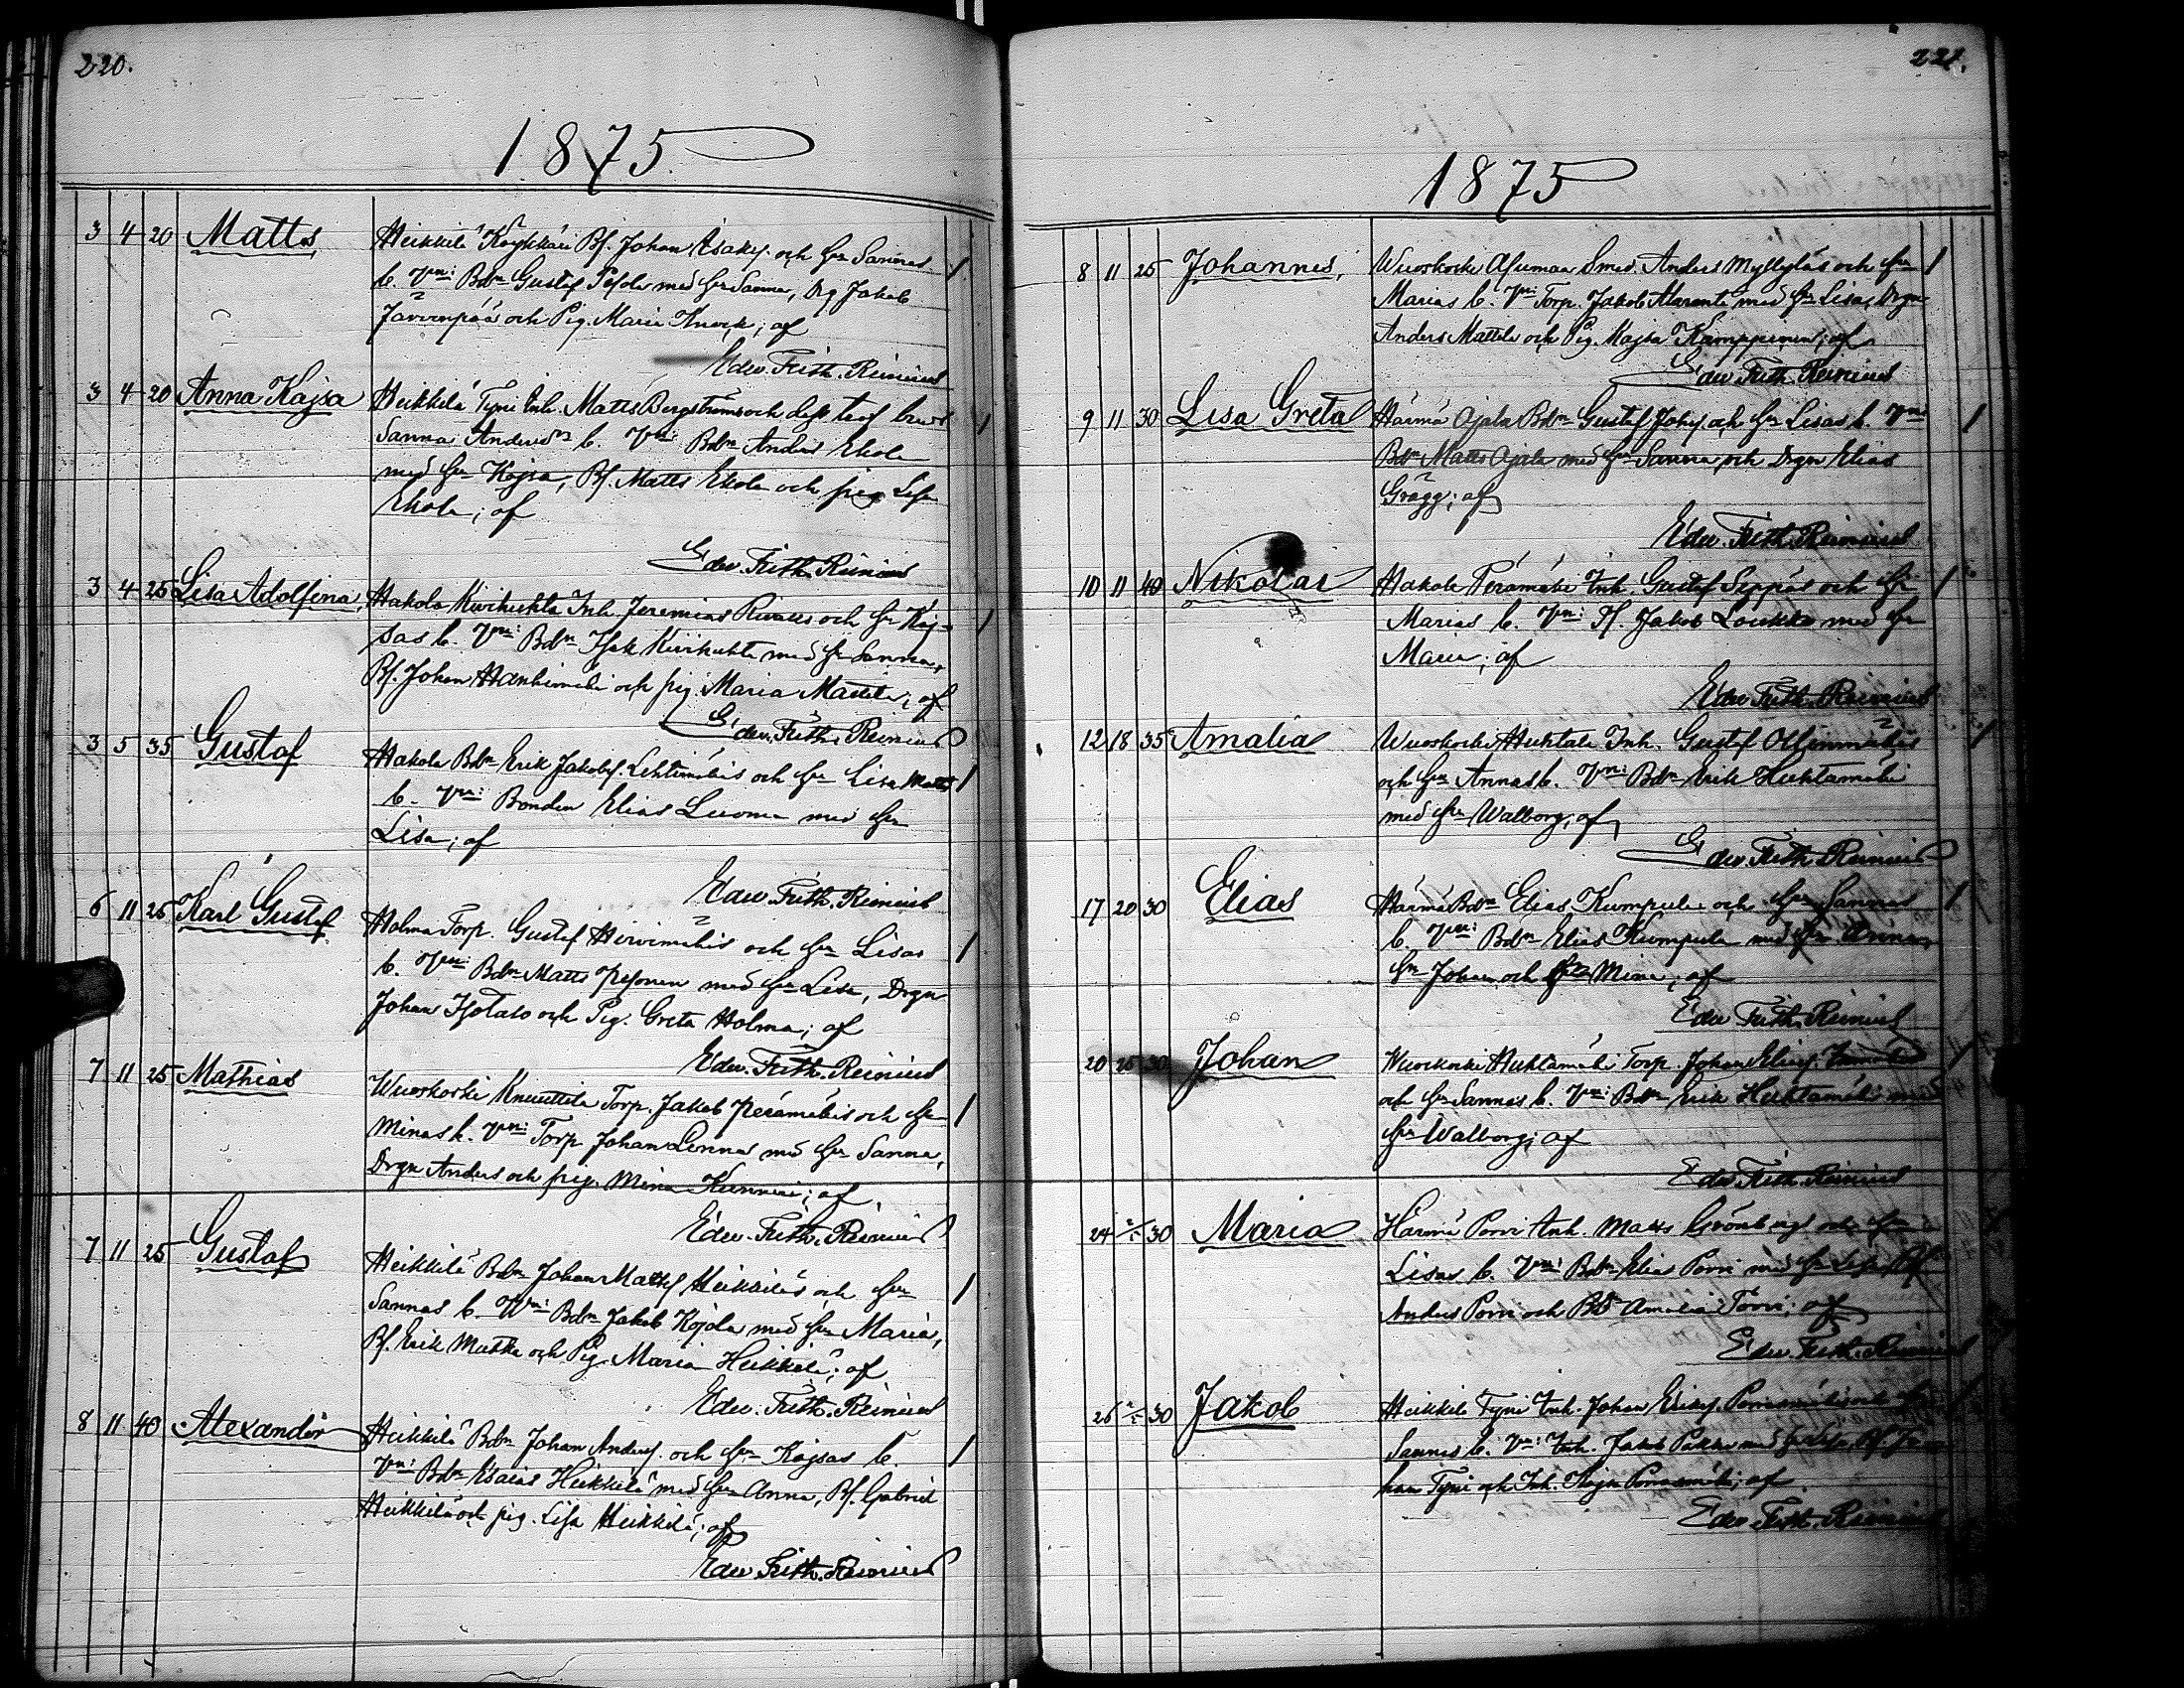 220.
1875
3 4 20 Matts Heikkilä Köykkäri Bs. Johan Isaks. och Hu Sannas
b. Vni: Bdn Gustaf Pesola med Hu Sanna, Dg Jakob
Järvenpää och Pig. Maria Knock; af
Edw. Frith. Reinius
3 4 20 Anna Kajsa Heikkilä Tyni Inh. Matts Bergströms och
Sanna Andersdr b. Vni: Bdn Anders Ekola
med Hu Kajsa, Bs. Matts Ekola och pig Lisa
Ekola; af
Edw. Frith. Reinius
3 4 25 Lisa Adolfina, Hakola Kivihuhta Inh. Jeremias och Hu Kaj-
sas b. Vni: Bdn Isak Kivihuhta med Hu Sanna,
Bs. Johan Hankimäki och pig. Maria Mattila; af
Edw. Frith. Reinius
3 5 35 Gustaf Hakola Bdn Erik Jakobs. Lehtimäkis och Hu Lisa Matts
b. Vni: Bonden Elias Luoma med Hu
Lisa; af
Edw. Frith. Reinius
6 11 25 Karl Gustaf Holma Torp. Gustaf Hirvimäkis och Hu Lisas
b. Vni: Bdn Matts Pesonen med Hu Lisa, Drgn
Johan Isotalo och Pig. Greta Holma; af
Edw. Frith. Reinius
7 11 25 Mathias Wuoskoski Knuuttila Torp. Jakob Perämäkis och Hu
Minas b. Vni: Torp. Johan Lennas med Hu Sanna,
Drgn Anders och pig. Mina Kunnari; af
Edw. Frith. Reinius
7 11 25 Gustaf Heikkilä Bdn Johan Matts Heikkiläs och Hu
Sannas b. Wni: Bdn Jakob Kojola med Hu Maria,
Bs. Erik Mutka och Pig. Maria Heikkilä; af
Edw. Frith. Reinius
8 11 40 Alexander Heikkilä Bdn Johan Anders. och Hu Kajsas b.
Vni: Bdn Esaias Heikkilä med Hu Anna, Bs. Gabriel
Heikkilä och pig. Lisa Heikkilä; af
Edw. Frith. Reinius
221.
1875
8 11 25 Johannes, Wuoskoski Asumaa Smed. Anders Myllyläs och Hu
Marias b. Vni: Torp. Jakob Alaranta med Hu Lisa, Drgn
Anders Mattila och Pig. Kajsa Kamppinen; af
Edw. Frith. Reinius
9 11 30 Lisa Greta Härmä Ojala Bdn Gustaf Johs. och Hu Lisas b. Vni
Bdn Matts Ojala med Hu Sanna och Drgn Elias
Grägg; af
Edw. Frith. Reinius
10 11 40 Nikolai Hakola Perämäki Inh. Gustaf Seppäs och Hu
Marias b. Vni: Jakob Loukko med Hu
Maria; af
Edw. Frith. Reinius
12 18 35 Amalia Wuoskoski Huhtala Inh. Gustaf Ollinmäkis
och Hu Annas b. Vni: Bdn Erik Huhtamäki
med Hu Walborg; af
Edw. Frith. Reinius
17 20 30 Elias Härmä Bdn Elias Kumpula och Hu Sannas
b. Vni: Bdn Elias Kumpula med Hu Anna,
Johan och Mina; af
Edw. Frith. Reinius
20 25 30 Johan Wuoskoski Huhtamäki Torp. Johan Elias.
och Hu Sannas b. Vni: Bdn Erik Huhtamäki med
Hu Walborg; af
Edw. Frith. Reinius
24 30 Maria Härmä Porri Inh. Matts Grönbergs och Hu
Lisas b. Vni: Bdn Elias Porri med Hu Lisa, Bs
Anders Porri och Bd Amalia Porri; af
Edw. Frith. Reinius
26 30 Jakob Heikkilä Tyni Inh. Johan Eriks. och Hu
Sannas b. Vni: Inh. Jakob Pukka med Hu Lisa, Bs. Jo-
han Tyni och Inh. Kajsa Porrasmäki; af
Edw. Frith. Reinius